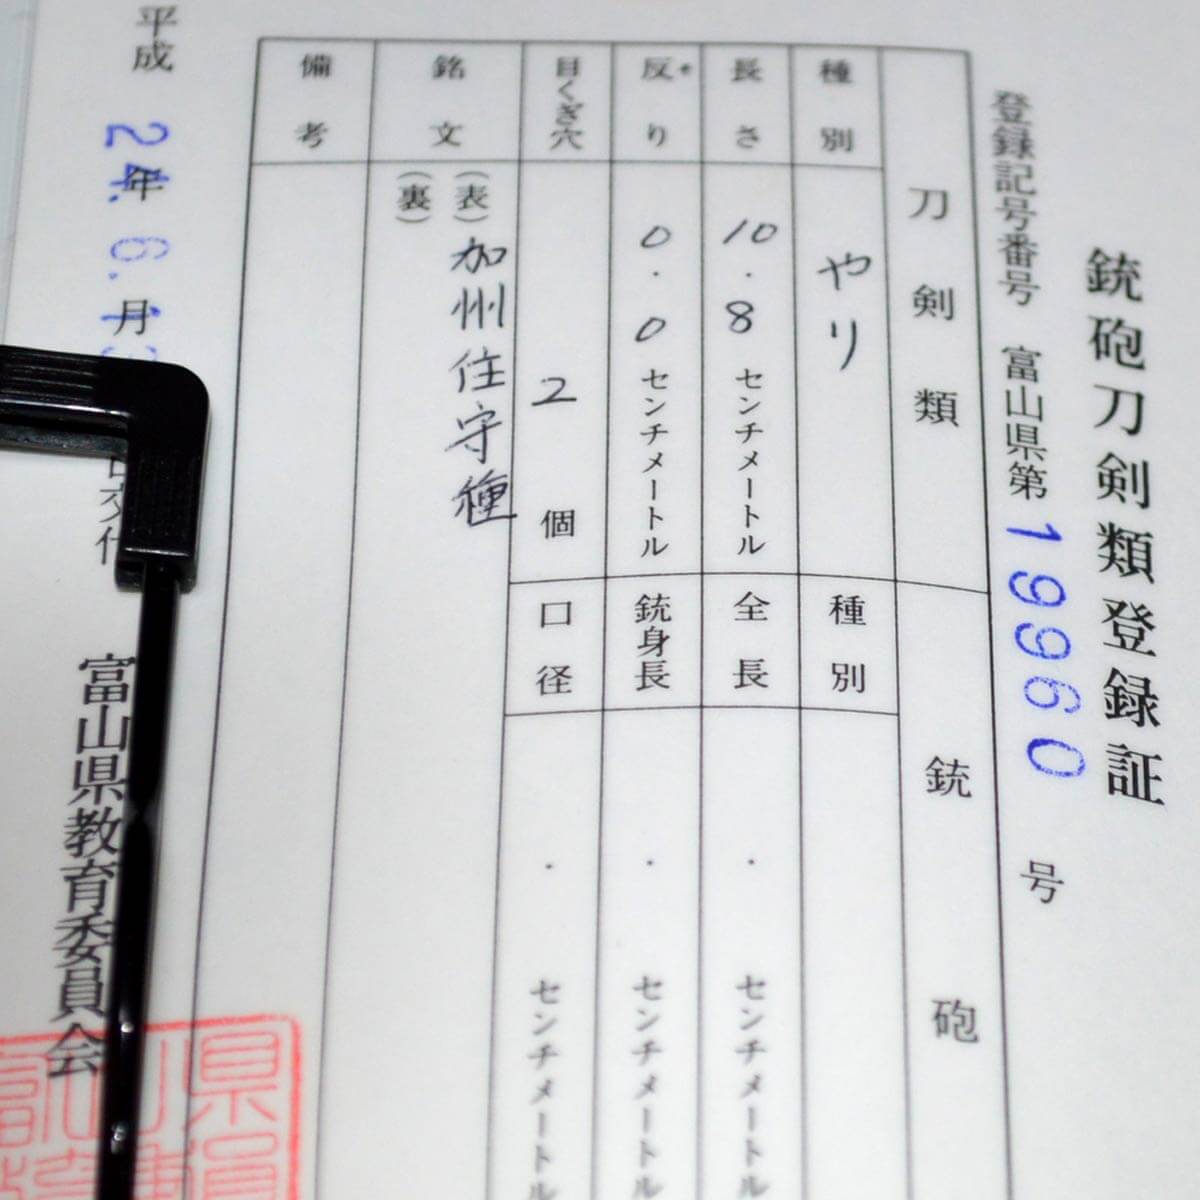 銃砲刀剣類登録証
登録記号番号 富山県第 19960 号
刀剣類
種別 やり
長さ 10.8 センチメートル
反り 0.0 センチメートル
目くぎ穴 2 個
銘文 (表) 加州住守種
(裏)
備考
銃砲
種別
全長 . センチメートル
銃身長 . センチメートル
口径 . センチメートル
平成 24年 6.月 13 日交付
富山県教育委員会